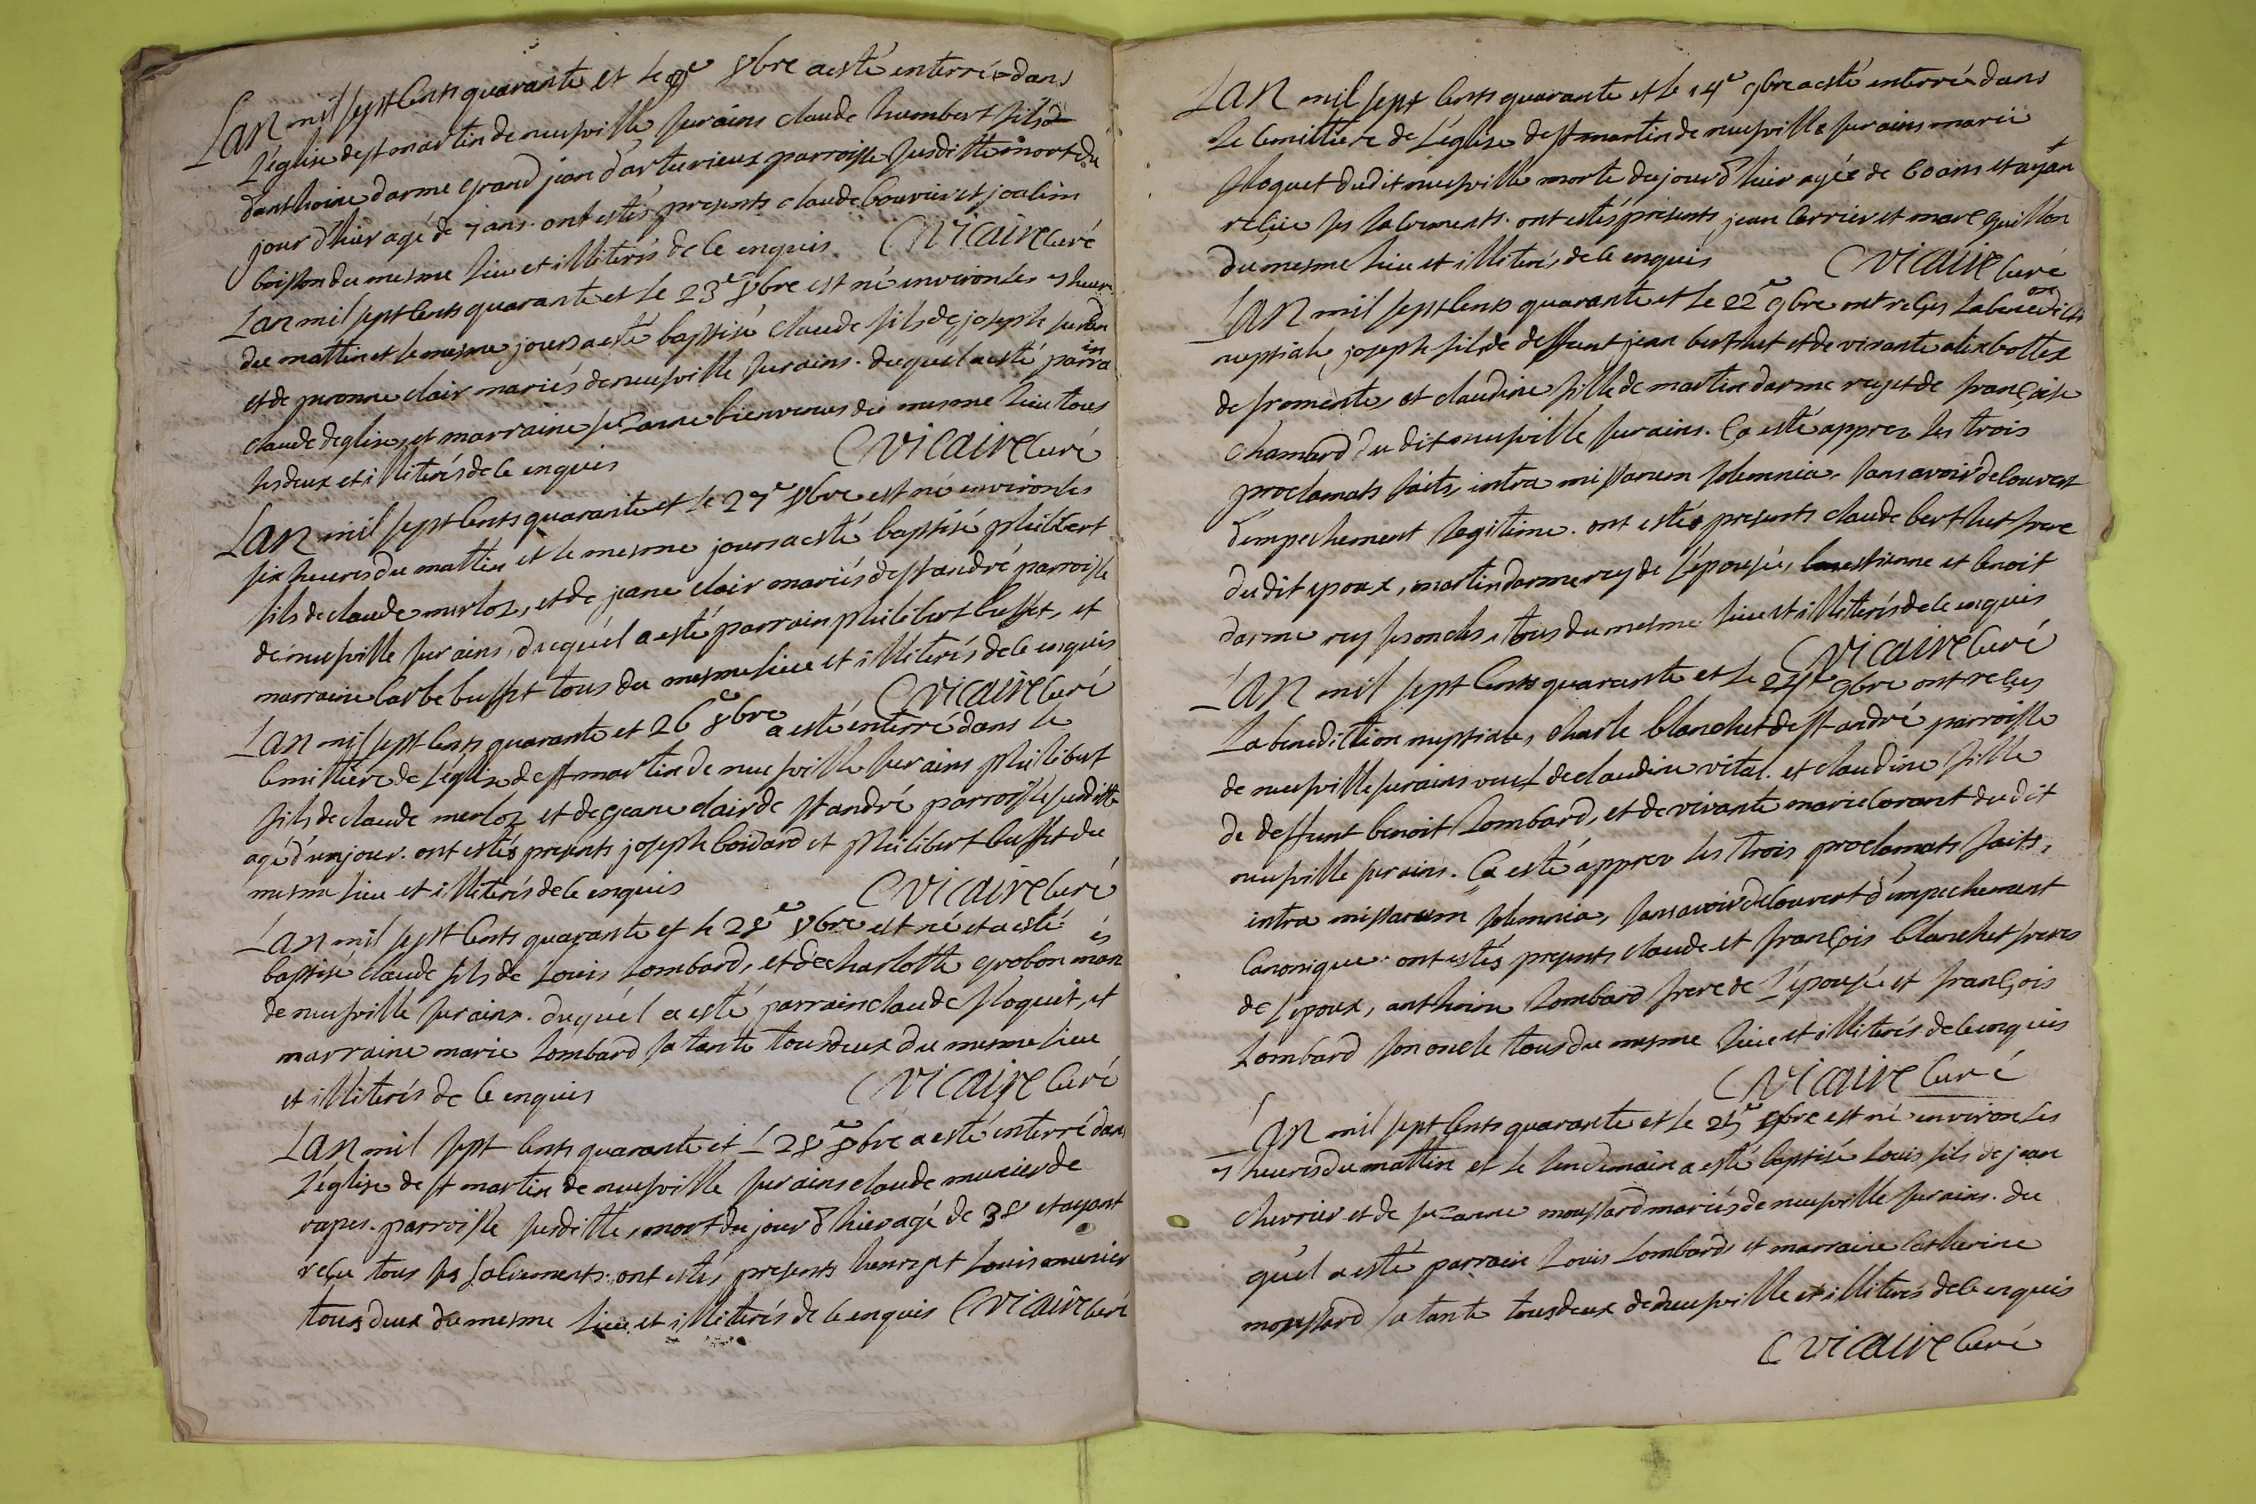 Lan mil sept cents quarante et le 8bre a esté enterré dans
l'église de st martin de neufville sur ains claude humbert fils d
danthoine darme grand jean d'arturieux parroisse susditte mort du
jour d'hier agé de 7 ans. ont estés presents claude bouvier et joachim
boisson du mesme lieu et illiterés de ce enquis. Cvicaire curé
Lan mil sept cents quarante et le 23e 8bre est né environ les 7 heur
du mattin et le mesme jours a esté baptisé claude fils de joseph
et de pronne clair mariés de neufville sur ains. duquel a esté parra in
claude deglise, et marraine suzanne bienvenus du mesme lieu tous
les deux et illiterés de ce enquis Cvicaire curé
Lan mil sept cents quarante et le 25e 8bre est né environ les
six heures du mattin et le mesme jours a esté baptisé philibert
fils de claude merloz, et de jeane clair mariés de st andré parroisse
de neufville sur ains, duquél a esté parrain philibert buffet, et
marraine barbe buffet tous du mesme lieu et illiterés de ce enquis
Cvicaire curé
Lan mil sept cents quarante et 26e 8bre a esté enterré dans le
cemittiere de l'églize de st martin de neufville sur ains philibert
fils de claude merloz et de jeane clair de st andré parroisse susditte
agé d'un jour. ont estés presents joseph boidard et philibert buffet du
mesme lieu et illiterés de ce enquis Cvicaire curé
Lan mil sept cents quarante et le 28e 8bre est né et a esté
baptisé claude fils de Louis Lombard, et de charlotte grobon mari és
de neufville sur ains. duquél a esté parrain claude floquet, et
marraine marie Lombard sa tante tous deux du mesme lieu
et illiterés de ce enquis Cvicaire curé
Lan mil sept cents quarante et L 28e 8bre a esté enterré dans
l'églize de st martin de neufville sur ains claude murier de
rapes. parroisse susditte, mort du jour d'hier agé de 38 et ayant
reçu tous ses sacrements. ont estés presents henry et Louis murier
tous deux du mesme lieu et illiterés de ce enquis Cvicaire curé
Lan mil sept cents quarante et le 14e 9bre a esté enterré dans
le cemittiere de L'églize de st martin de neufville sur ains marie
floquet dudit neufville morte du jour d'hier agée de 60 ans et ayan t
reçue ses sacrements. ont estés présents jean cerrier et marc guillon
du mesme lieu et illiterés de ce enquis Cvicaire curé
Lan mil sept cents quarante et le 22e 9bre ont reçus la benedicti on
nuptiale joseph fils de deffunt jean berthet et de vivante bottex
de fromente, et claudine fille de martin darme rey et de françoise
chamard dudit neufville sur ains. ça esté apprez les trois
proclamats faits, intra missarum solemnia, sans avoir decouvert
d'empechement legitime. ont estés presents claude berthet frere
du dit epoux, martin darme rey de l'épousée, estienne et benoit
darme rey ses oncles, tous du mesme lieu et illiterés de ce enquis
Cvicaire curé
Lan mil sept cents quarante et le 24e 9bre ont reçus
La benediction nuptiale, charle blanchet de st andré parroisse
de neufville sur ains veuf de claudine vital. et claudine fille
de deffunt benoit Lombard, et de vivante marie corant dudit
neufville sur ains. ça esté apprez les trois proclamats faits,
intra missarum solemnia, sans avoir decouvert d'empechement
canonique. ont estés presents claude et françois blanchet freres
de l'époux, anthoine Lombard frere de l'épousée et françois
Lombard son oncle tous du mesme lieu et illiterés de ce enquis
Cvicaire curé
Lan mil sept cents quarante et le 25e 9bre est né environ les
7 heures du mattin et le lendemain a esté baptisé Louis fils de jean
cherrier et de suzanne moussard mariés de neufville sur ains. du
quél a esté parrain Louis Lombard et marraine catherine
moussard sa tante tous deux de neufville et illiterés de ce enquis
Cvicaire curé